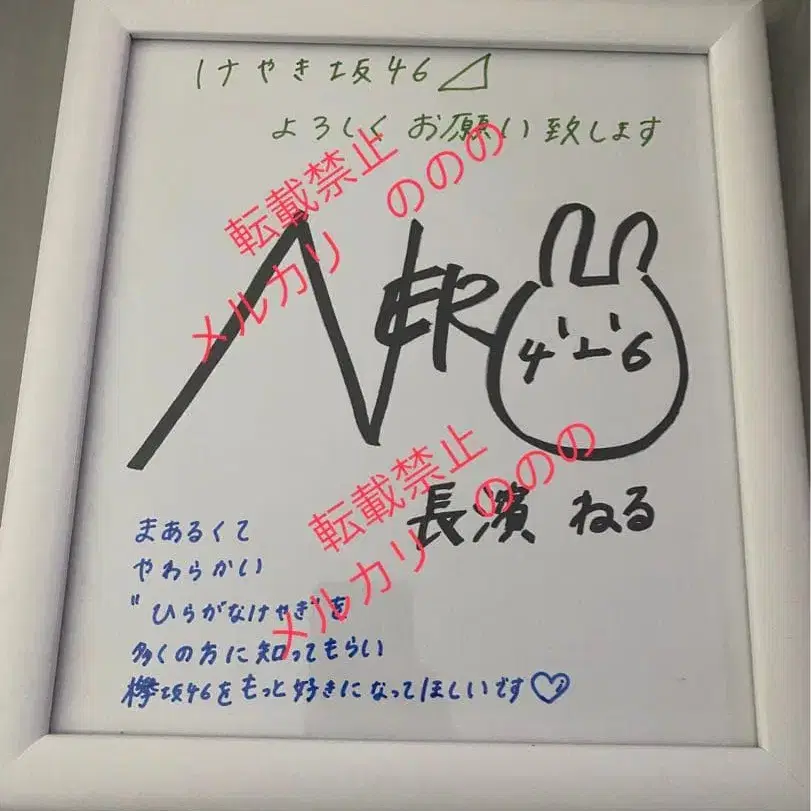 けやき坂46⊿
よろしくお願い致します
転載禁止 ののの
メルカリ
NERO
4 6
転載禁止 ののの
メルカリ
長濱 ねる
まあるくて
やわらかい
"ひらがなけやき"を
多くの方に知ってもらい
欅坂46をもっと好きになってほしいです♡